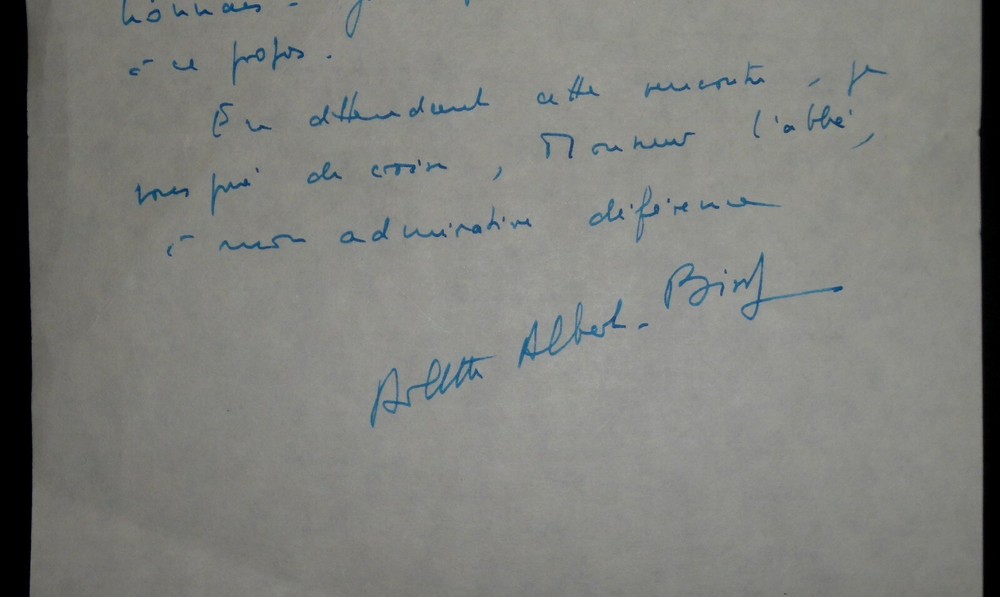 à ce propos.
En attendant cette rencontre, je
vous prie de croire, Monsieur l'abbé,
à mon admirative déférence
Arlette Albert-Birot